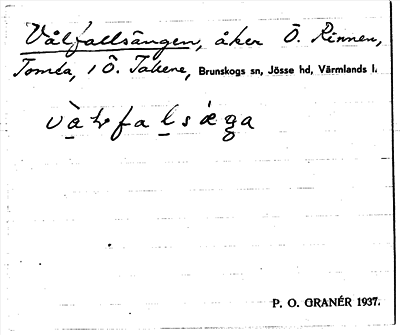 Vålfallsängen, åker Ö. Rinnen,
Tomta, i Ö. Takene, Brunskogs sn, Jösse hd, Värmlands l.
P. O. GRANÉR 1937.